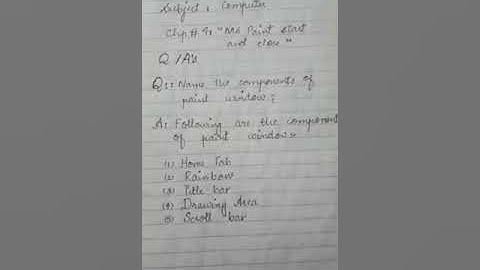 Subject : Computer
Chp # 9: "Ms Paint start
and close"
Q/A's
Q1: Name the components of
paint window;
A: Following are the component
of paint window:
(1) Home Tab
(2) Rainbow
(3) Title bar
(4) Drawing Area
(5) Scroll bar